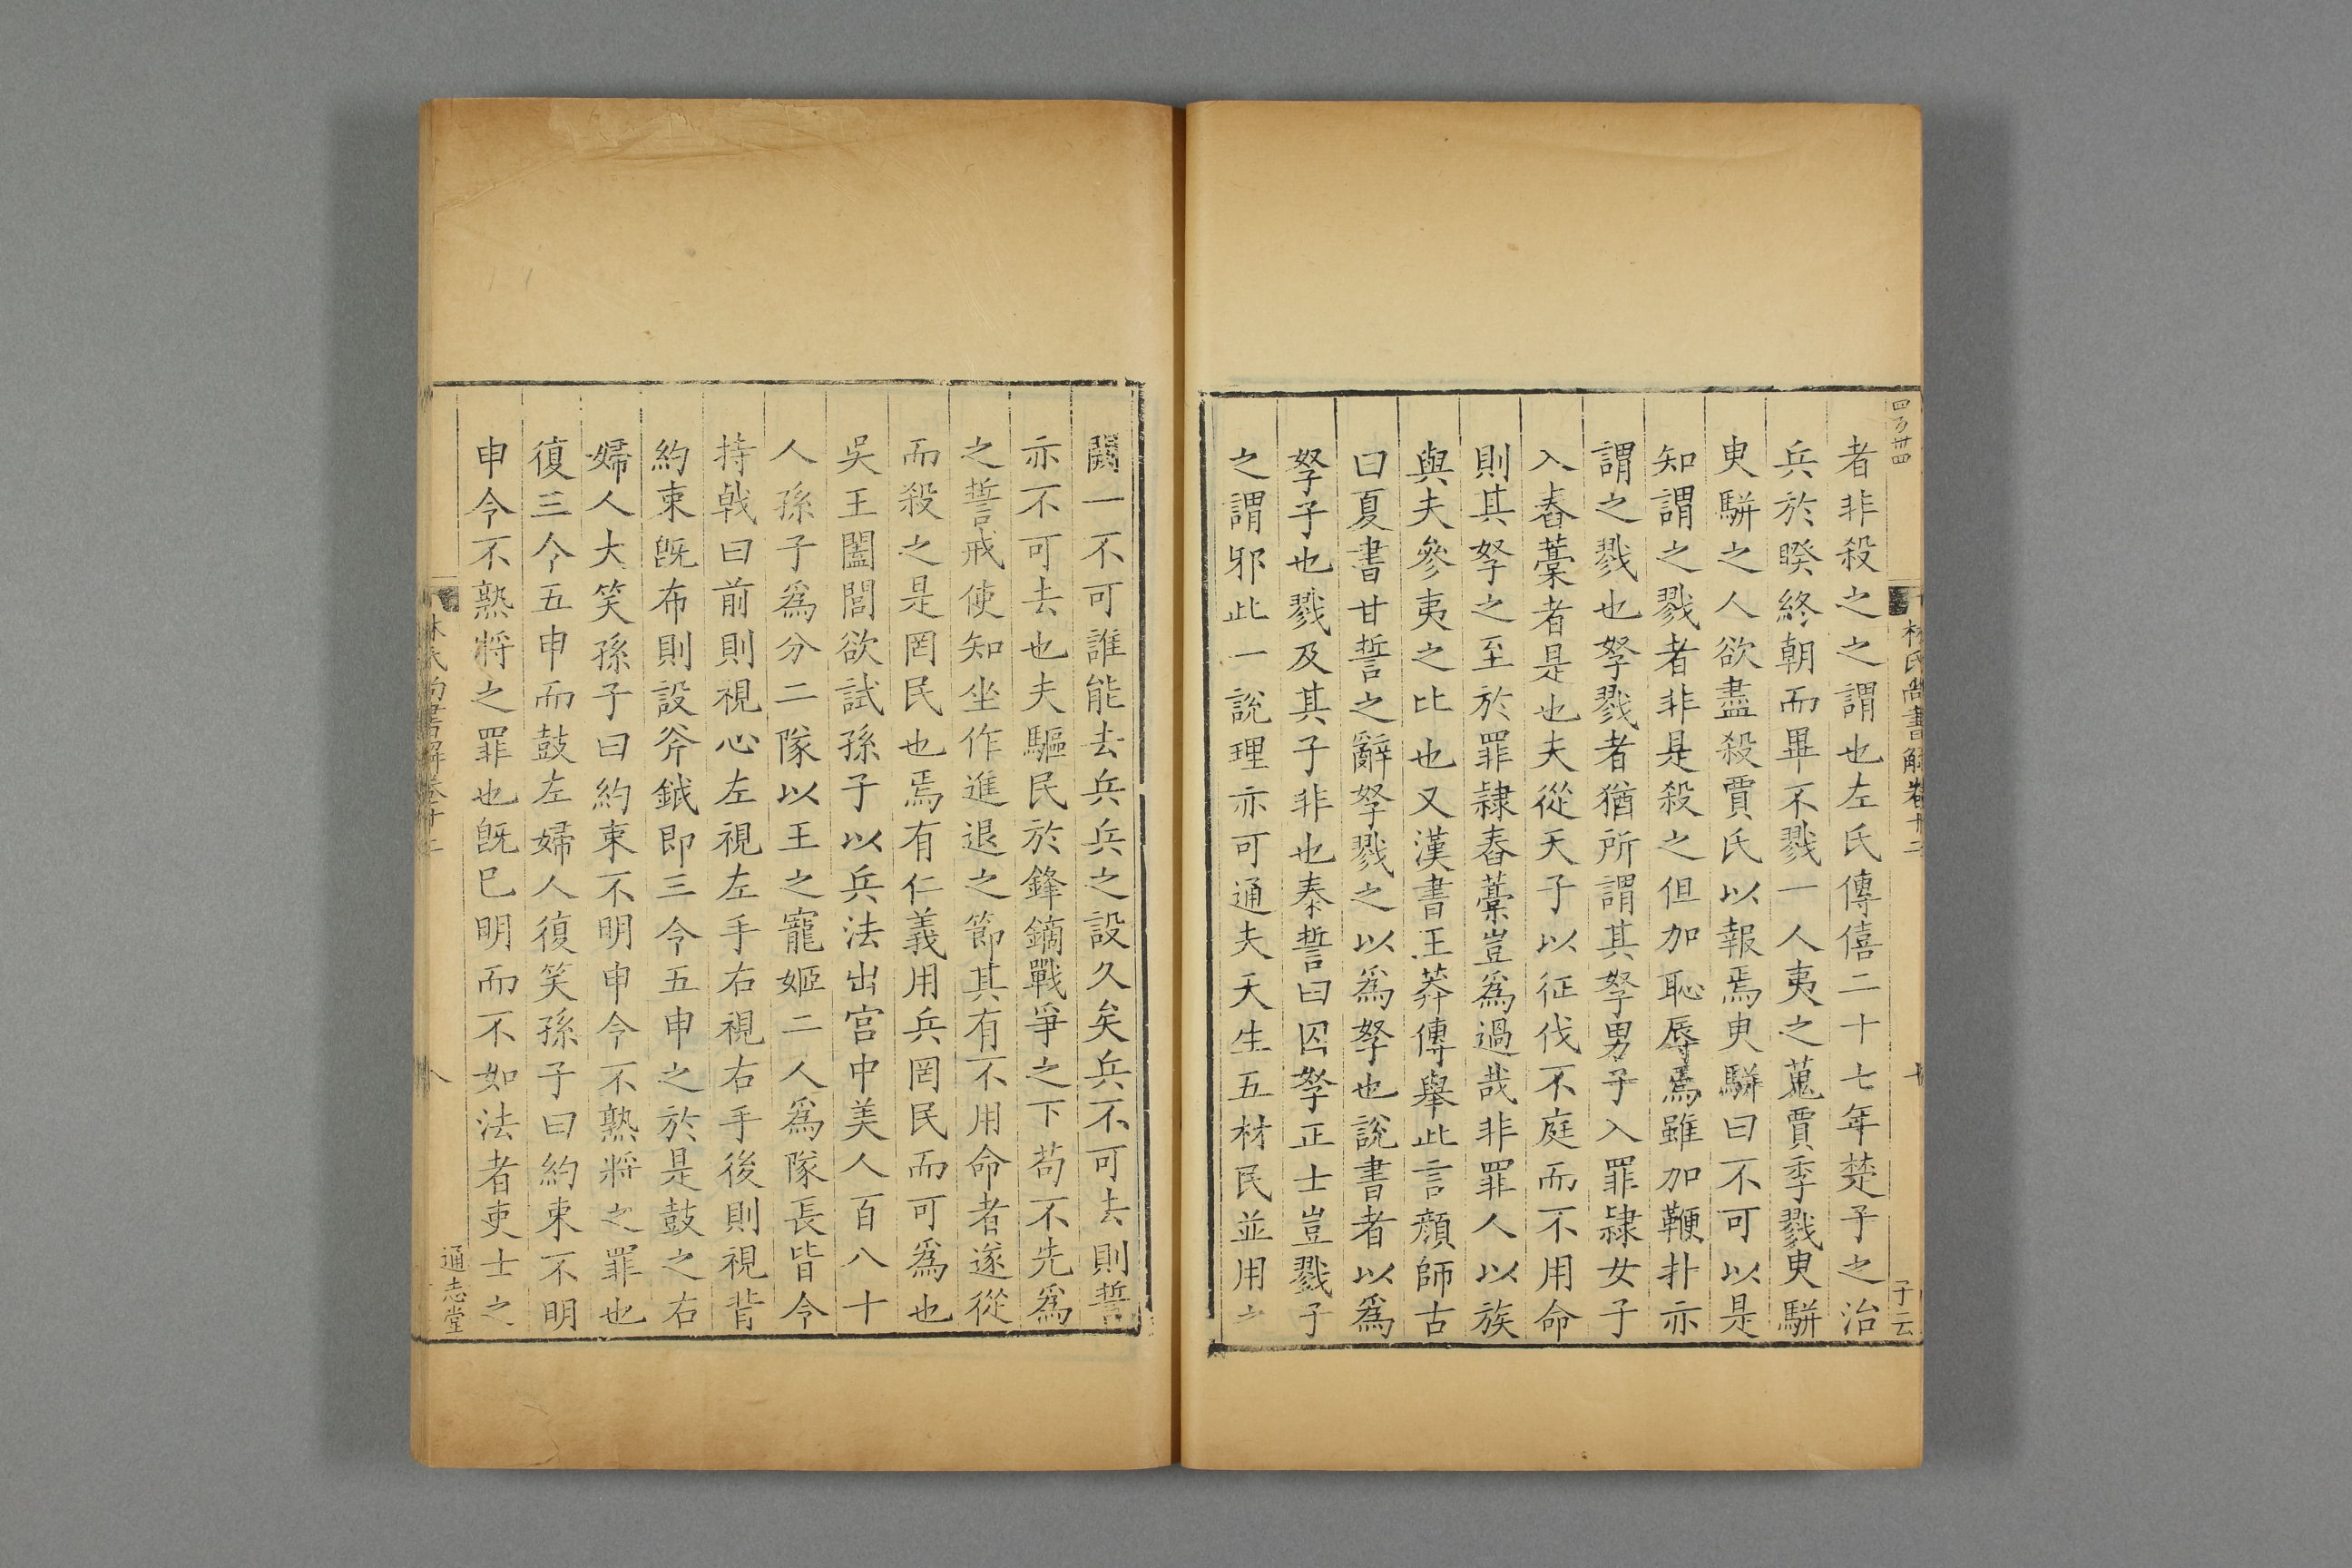 四百卅四
林氏尚書解卷十二
十
子云
者非殺之之謂也左氏傳僖二十七年楚子之治
兵於睽終朝而畢不戮一人夷之蒐賈季戮臾駢
臾駢之人欲盡殺賈氏以報焉臾駢曰不可以是
知謂之戮者非是殺之但加恥辱焉雖加鞭扑亦
謂之戮也孥戮者猶所謂其孥男子入罪隷女子
入舂藁者是也夫從天子以征伐不庭而不用命
則其孥之至於罪隷舂藁豈爲過哉非罪人以族
與夫參夷之比也又漢書王莽傳舉此言顏師古
曰夏書甘誓之辭孥戮之以爲孥也說書者以爲
孥子也戮及其子非也泰誓曰囚孥正士豈戮子
之謂邪此一說理亦可通夫天生五材民並用之
闕一不可誰能去兵兵之設久矣兵不可去則誓
亦不可去也夫驅民於鋒鏑戰爭之下苟不先爲
之誓戒使知坐作進退之節其有不用命者遂從
而殺之是罔民也焉有仁義用兵罔民而可爲也
吳王闔閭欲試孫子以兵法出宮中美人百八十
人孫子爲分二隊以王之寵姬二人爲隊長皆令
持戟曰前則視心左視左手右視右手後則視背
約束旣布則設斧鉞即三令五申之於是鼓之右
婦人大笑孫子曰約束不明申令不熟將之罪也
復三令五申而鼓左婦人復笑孫子曰約束不明
申令不熟將之罪也旣巳明而不如法者吏士之
林氏尚書解卷十二
八
通志堂